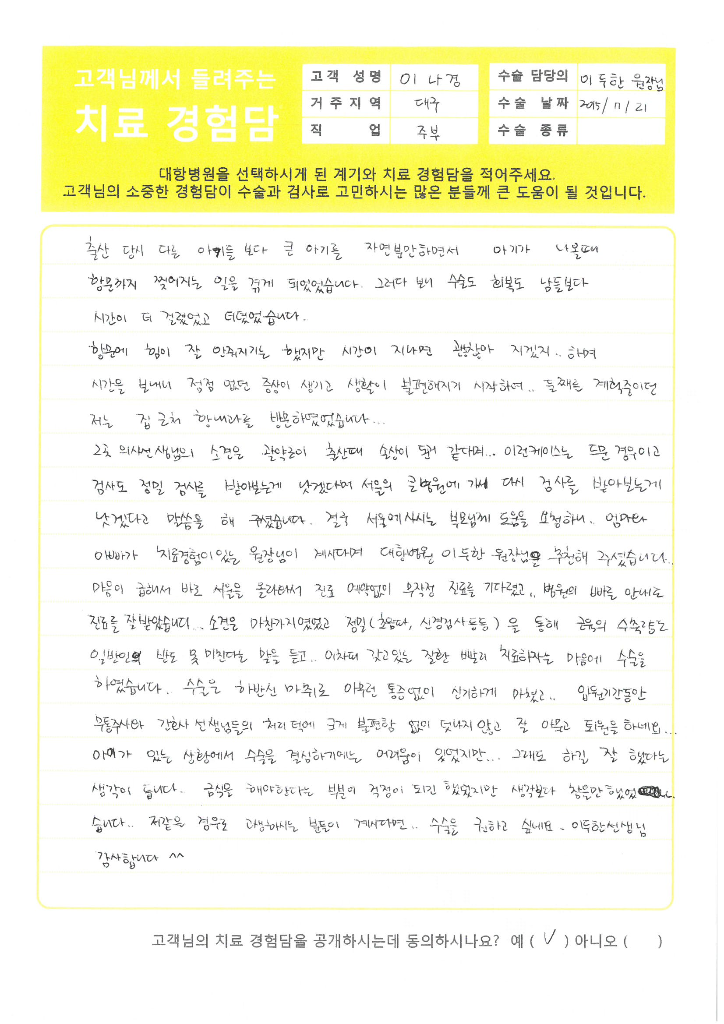 고객님께서 들려주는
치료 경험담
고객 성명 이나경
거주지역 대구
직 업 주부
수술 담당의 이두한 원장님
수술 날짜 2015/11/21
수술 종류
대항병원을 선택하시게 된 계기와 치료 경험담을 적어주세요.
고객님의 소중한 경험담이 수술과 검사로 고민하시는 많은 분들께 큰 도움이 될 것입니다.
출산 당시 다른 아기들 보다 큰 아기를 자연분만하면서 아기가 나올때
항문까지 찢어지는 일을 겪게 되었었습니다. 그러다 보니 수술도 회복도 남들보다
시간이 더 걸렸었고 더뎠었습니다.
항문에 힘이 잘 안줘지기는 했지만 시간이 지나면 괜찮아 지겠지.. 하며
시간을 보내니 점점 없던 증상이 생기고 생활이 불편해지기 시작하여.. 둘째를 계획중이던
저는 집 근처 항내과를 방문하였었습니다...
그곳 의사선생님의 소견은 괄약근이 출산때 손상이 된거 같다며.. 이런케이스는 드문 경우이고
검사도 정밀 검사를 받아보는게 낫겠다며 서울의 큰병원에 가서 다시 검사를 받아보는게
낫겠다고 말씀을 해 주셨습니다. 결국 서울에사시는 부모님께 도움을 요청하니.. 엄마와
아빠가 치료경험이있는 원장님이 계시다며 대항병원 이두한 원장님을 추천해 주셨습니다..
마음이 급해서 바로 서울을 올라와서 진료 예약없이 무작정 진료를 기다렸고.. 병원의 빠른 안내로
진료를 잘받았습니다.. 소견은 마찬가지였었고 정밀(초음파, 신경검사등등)을 통해 근육의 수축력도
일반인의 반도 못 미친다는 말을 듣고.. 이차피 갖고있는 질환 빨리 치료하자는 마음에 수술을
하였습니다.. 수술은 하반신 마취로 아무런 통증없이 신기하게 마쳤고.. 입원기간동안
무통주사와 간호사 선생님들의 처리 덕에 크게 불편함 없이 덧나지 않고 잘 아물고 퇴원을 하네요...
아이가 있는 상황에서 수술을 결심하기에는 어려움이 있었지만... 그래도 하길 잘 했다는
생각이 듭니다. 금식을 해야한다는 부분이 걱정이 되긴 했었지만 생각보다 참을만 했었
습니다.. 저같은 경우로 고생하시는 분들이 계시다면.. 수술을 권하고 싶네요. 이두한선생님
감사합니다 ^^
고객님의 치료 경험담을 공개하시는데 동의하시나요? 예 ( V ) 아니오 ( )